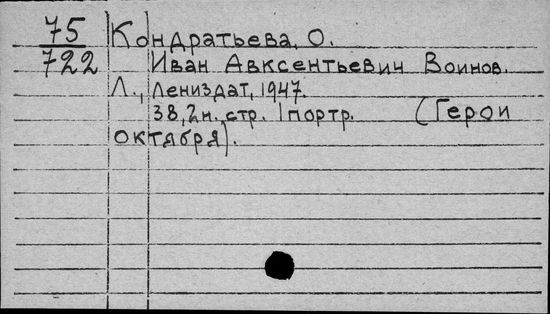 75
722
Кондратьева, О.
Иван Авксентьевич Воинов.
Л., Лениздат, 1947.
38, 2 н. стр. 1 портр. (Герои
октября).